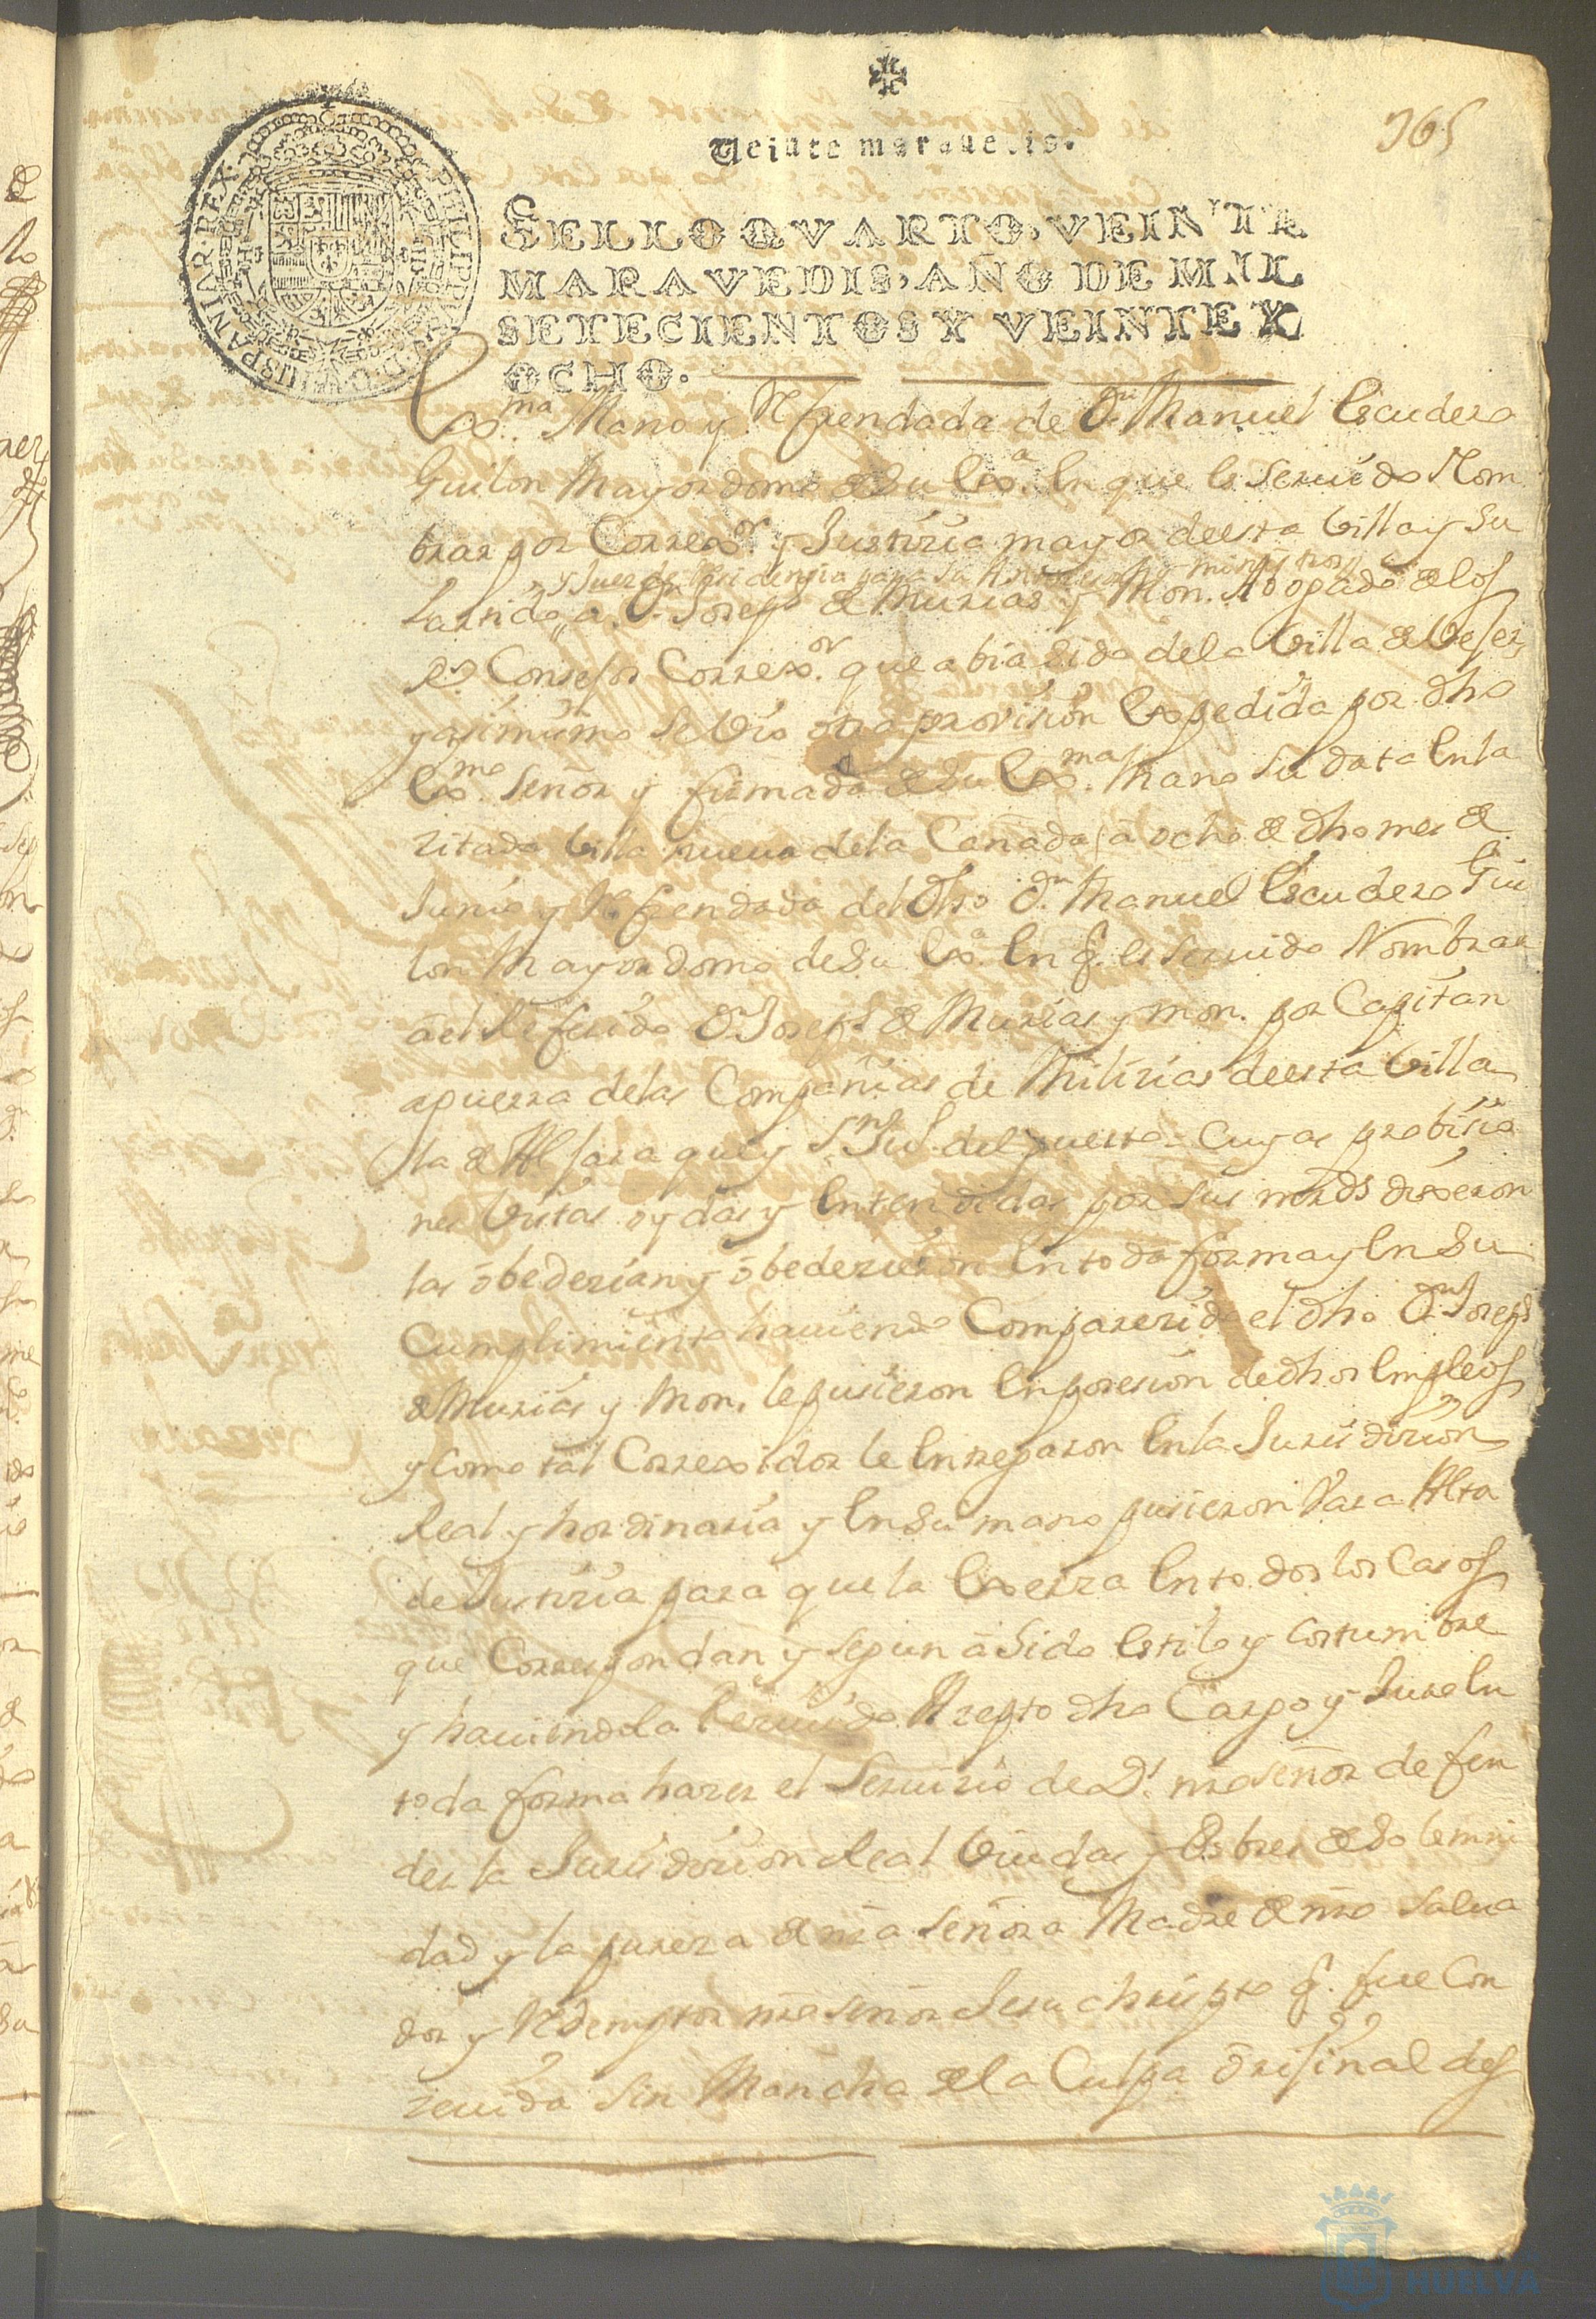 365
Veinte maravedis.
PHILIPPUS V D G HISPANIAR REX
SELLO QVARTO, VEINTE
MARAVEDIS, AÑO DE MIL
SETECIENTOS Y VEINTE Y
OCHO.
Exma. Mano y Refrendada de Dn. Manuel Escudero
Guilon Mayordomo de su Exa. En que es seruido Nom
brar por Correxor. y Justizia mayor de esta Villa y su
y Juez de Residenzia para su Antezesor y ministros
Partido, a Dn. Joseph de Murias y Mon. Abogado de los
Rs. Consejos Correxor. que abia sido de la Villa de Bejer,
y asimismo se Vio otra provision Expedida por dho
Exmo. Señor y firmada de su Exma. Mano su data En la
zitada Villa nueva de la Cañada, a ocho de dho mes de
Junio y Refrendada del dho Dn. Manuel Escudero Gui
lon Mayordomo de su Exa. En q. es seruido Nombrar
a el Referido Dn. Joseph de Murias y Mon. por Capitan
a guerra de las Compañias de Milizias de esta Villa
la de Aljaraque y Sn. Jul. del puerto - Cuyas probisio
nes Vistas oydas y Entendidas por sus mrzds dixeron
las obedezian y obedezieron En toda forma y En su
Cumplimiento hauiendo Comparezido el dho Dn. Joseph
de Murias y Mon. le pusieron En posesion de dhos Empleos
y Como tal Correxidor le Entregaron En la Jurisdizion
Real y hordinaria y En su mano pusieron Vara Alta
de Justizia para que la Exerza En todos los Casos
que Correspondan y segun a sido Estilo y costumbre
y hauiendola Reziuido Azepto dho Cargo y Juro En
toda forma hazer el Seruizio de Ds. nro señor defen
der la Jurisdizion Real Viudas y Pobres de Solemni
dad y la pureza de nra Señora Madre de nro Salua
dor y Redemptor nro señor Jesu christo q. fue Con
zeuida sin Mancha de la Culpa orijinal des
HUELVA